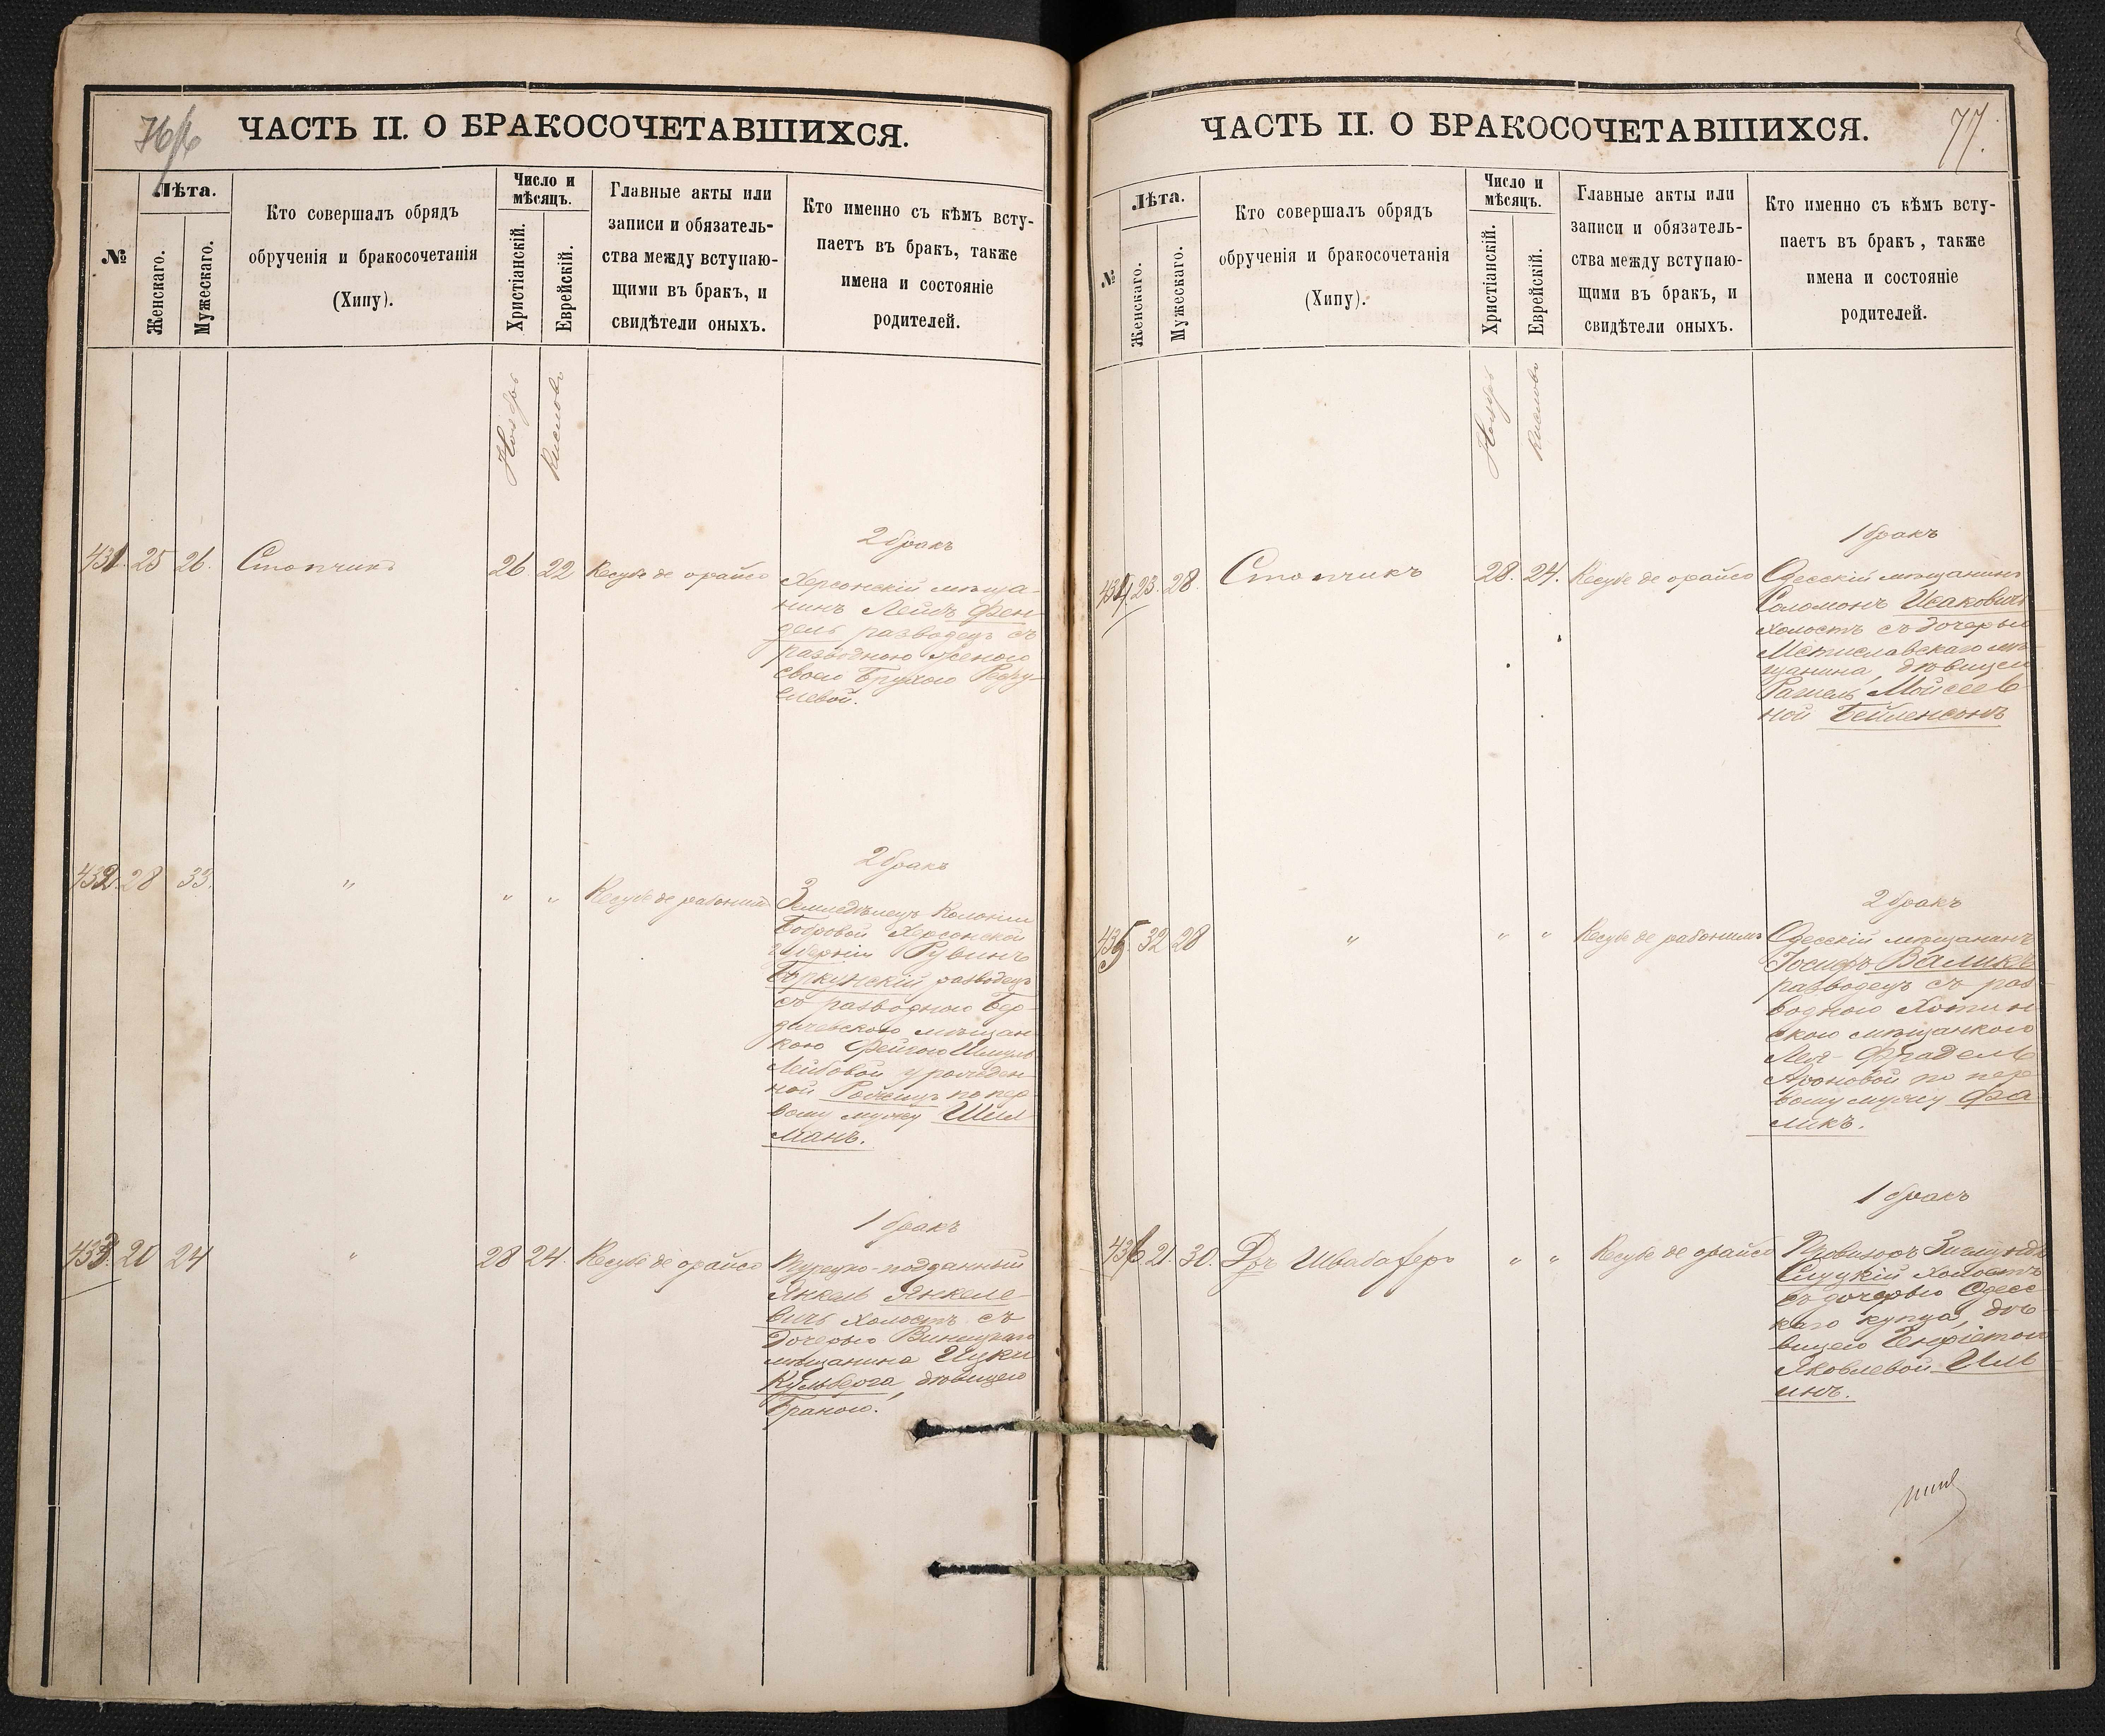 76/6
ЧАСТЬ II. О БРАКОСОЧЕТАВШИХСЯ.
№
Лѣта.
Женскаго.
Мужескаго.
Кто совершалъ обрядъ
обрученія и бракосочетанія
(Хипу).
Число и
мѣсяцъ.
Христіанскій.
Еврейскій.
Главные акты или
записи и обязатель-
ства между вступаю-
щими въ бракъ, и
свидѣтели оныхъ.
Кто именно съ кѣмъ всту-
паетъ въ бракъ, также
имена и состояніе
родителей.
Ноябрь
Кислевъ
2 бракъ
431. 25 26. Стопчикъ 26 22 Кесубе де орайсо
Херсонскій мѣща-
нинъ Лейбъ Фен-
дель разводецъ съ
разводною женою
своею Брухою
2 бракъ
432. 28 33. " " " Кесубе де рабонимъ
Земледѣлецъ Колоніи
Бобровой Херсонской
губерніи Рувинъ
разводецъ
съ разводною Бер-
дичевскою мѣщан-
кою Фейгою Шмуль
Лейбовой урожден-
ной по пер-
вому мужу Шил-
манъ.
1 бракъ
433. 20 24 " 28 24. Кесубе де орайсо
Турецко-подданный
Янкель Янкеле-
вичъ холостъ съ
дочерью Виницкаго
мѣщанина Ицки
Кульберга, дѣвицею
Браною.
77.
ЧАСТЬ II. О БРАКОСОЧЕТАВШИХСЯ.
№
Лѣта.
Женскаго.
Мужескаго.
Кто совершалъ обрядъ
обрученія и бракосочетанія
(Хипу).
Число и
мѣсяцъ.
Христіанскій.
Еврейскій.
Главные акты или
записи и обязатель-
ства между вступаю-
щими въ бракъ, и
свидѣтели оныхъ.
Кто именно съ кѣмъ всту-
паетъ въ бракъ, также
имена и состояніе
родителей.
Ноябрь
Кислевъ
1 бракъ
434. 23. 28. Стопчикъ 28. 24. Кесубе де орайсо
Одесскій мѣщанинъ
Соломонъ Исаковичъ
холостъ съ дочерью
Мстиславскаго мѣ-
щанина, дѣвицею
Рахель Мойсеев-
ной Бейленсонъ
2 бракъ
435. 32 28 " " " Кесубе де рабонимъ
Одесскій мѣщанинъ
Іосифъ Валикъ
разводецъ съ раз-
водною Хотин-
скою мѣщанкою
Лея-Фрадель
Ароновой по пер-
вому мужу Фа-
ликъ.
1 бракъ
436. 21. 30. Дръ Швабахеръ " " Кесубе де орайсо
Провизоръ Зигмундъ
Слуцкій холостъ
съ дочерью Одесс-
каго купца, дѣ-
вицею Генріетой
Яковлевой Иль-
инъ.